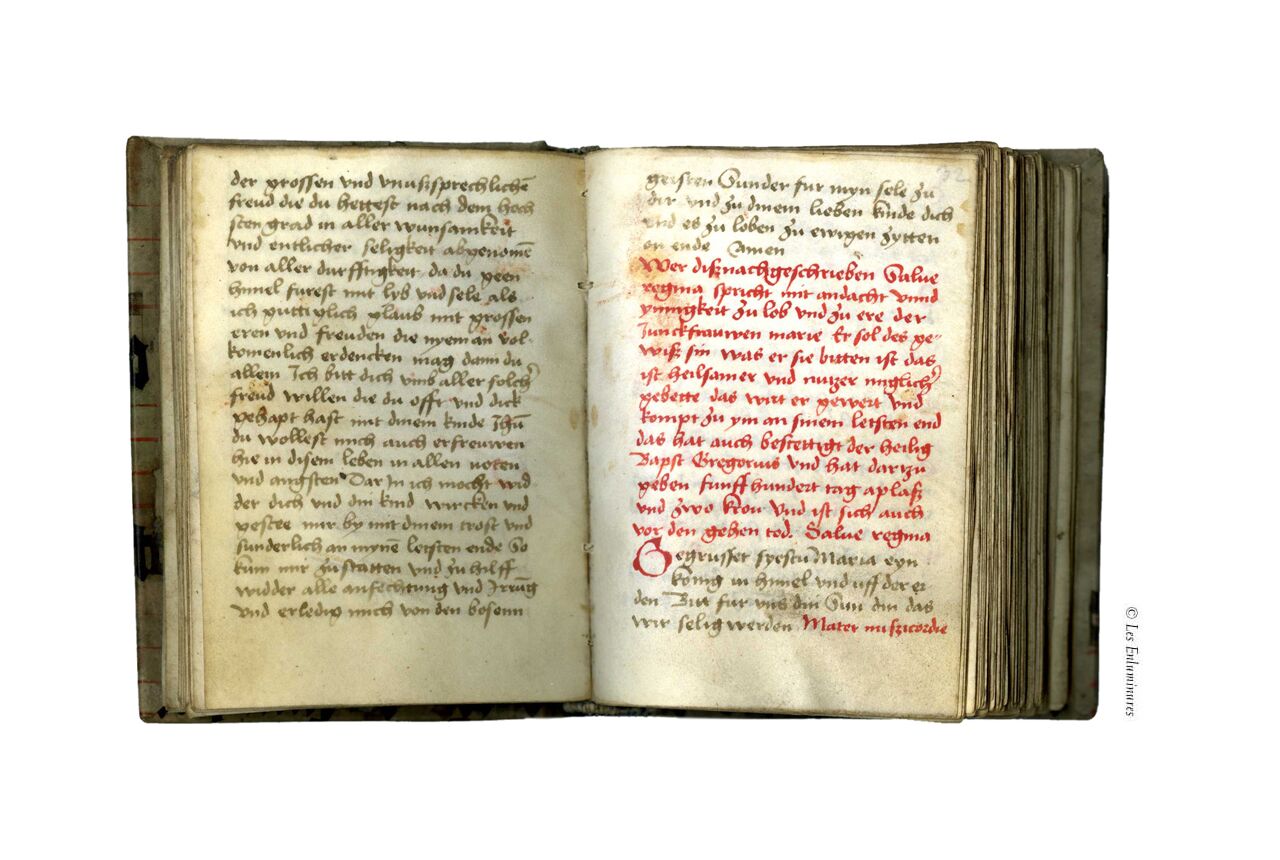 der grossen vnd vnußsprechlichē
freud die du hettest nach dem hoch
sten grad in aller wunsamkeit
vnd entlicher seligkeit abgenomē
von aller durfftigkeit da du geen
himel furest mit lyb vnd sele als
ich guttiglich glaub mit grossen
eren vnd freuden die nyeman vol-
komenlich erdencken mag dann du
allein Ich bitt dich vmb aller solch
freud willen die du offt vnd dick
gehapt hast mit dinem kinde Jhū
du wollest mich auch erfreuwen
hie in disem leben in allen noten
vnd angsten Dar In ich mocht wid
der dich vnd din kind wircken vnd
gestee mir by mit dinem trost vnd
sunderlich an mynē letsten ende So
kum mir zu statten vnd zu hilff
widder alle anfechtung vnd Irrūg
vnd erledig mich von den bosenn
32
geisten Sunder fur myn sele zu
dir vnd zu dinem lieben kinde dich
vnd es zu loben zu ewigen zytten
on ende Amen
Wer dißnachgeschrieben Salue
regina spricht mit andacht vnnd
ynnigkeit zu lob vnd zu ere der
Junckfrauwen marie Er sol des ge-
wiß sin was er sie bitten ist das
ist heilsamer vnd nutzer muglich
gebette das wirt er gewert vnd
kompt zu ym an sinem letsten end
das hat auch bestettigt der heilig
Bapst Gregorius vnd hat dartzu
geben funff hundert tag aplaß
vnd zwo kron vnd ist sich auch
vor den gehen tod. Salue regina
Gegrusset syestu Maria eyn
konig in himel vnd uff der er
den Bitt fur vns din Sun din das
wir selig werden Mater miszicordie
© Les Enluminures